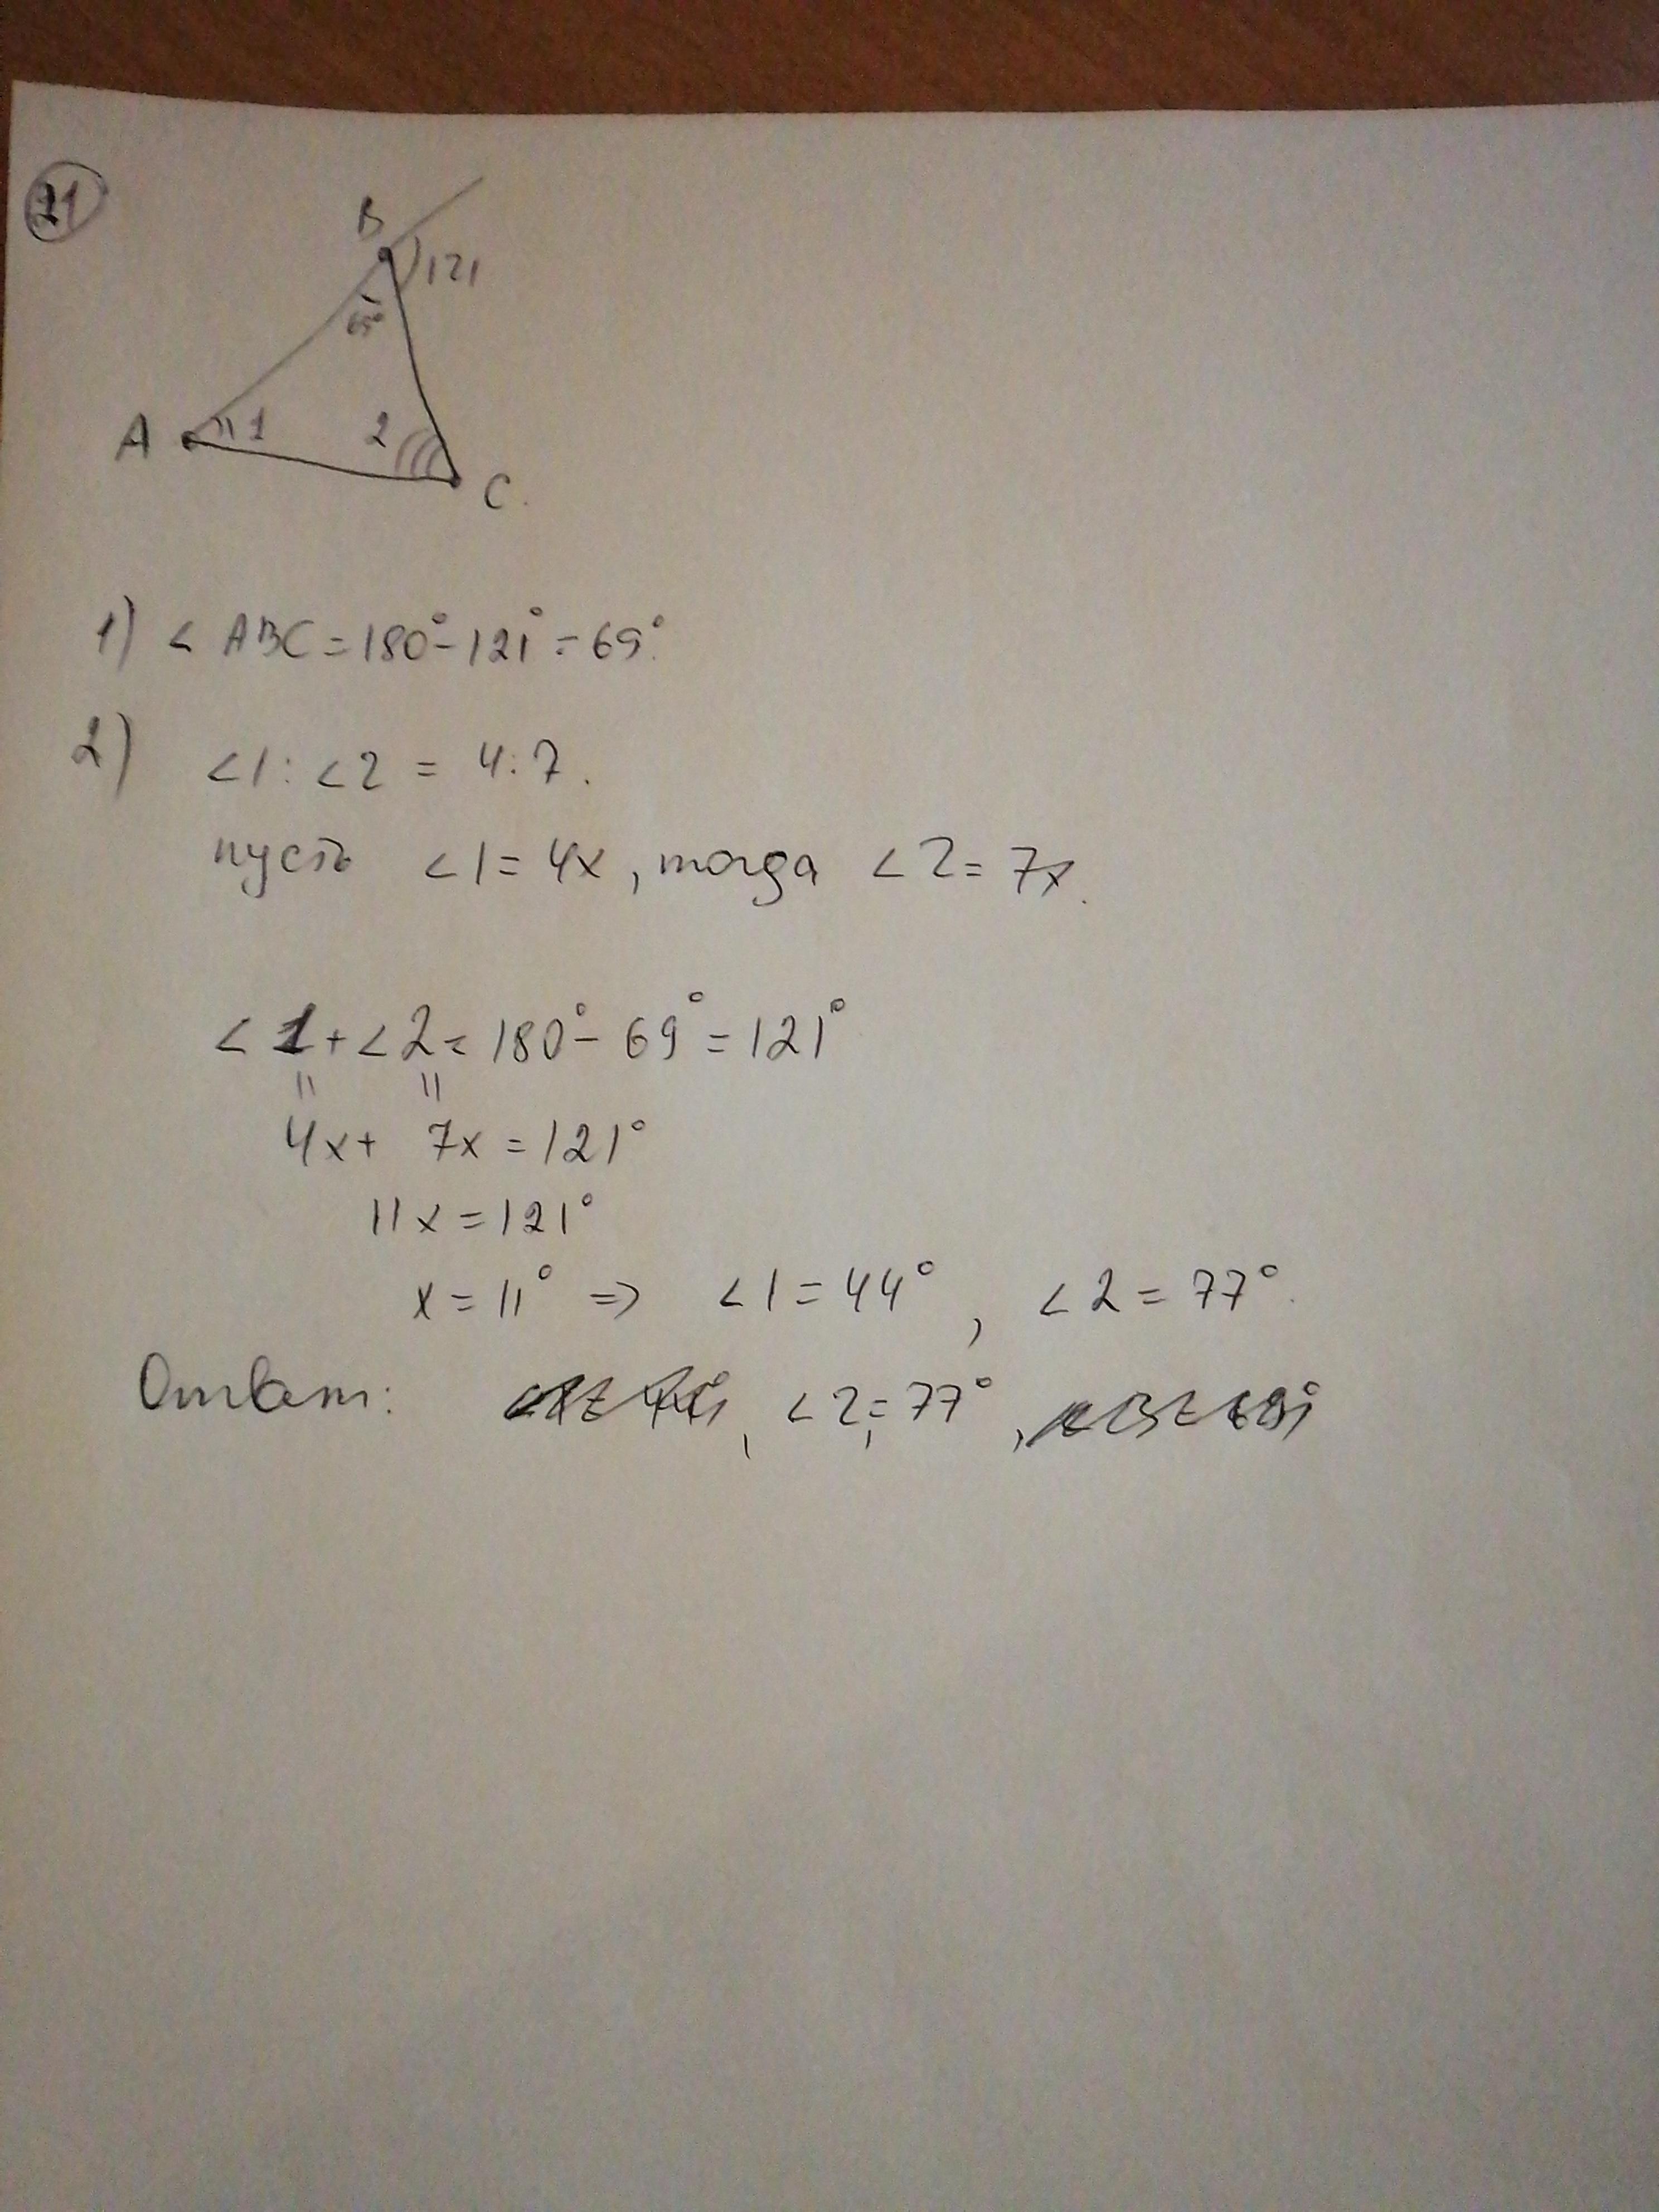 21
B
121
A
1
2
C.
1) < ABC = 180° - 121° = 69°.
2) <1 : <2 = 4:7.
пусть <1 = 4x, тогда <2 = 7x.
< 1 + < 2 = 180° - 69° = 121°
" "
4x + 7x = 121°
11x = 121°
x = 11° => <1 = 44°, <2 = 77°.
Ответ: , <2 = 77°,